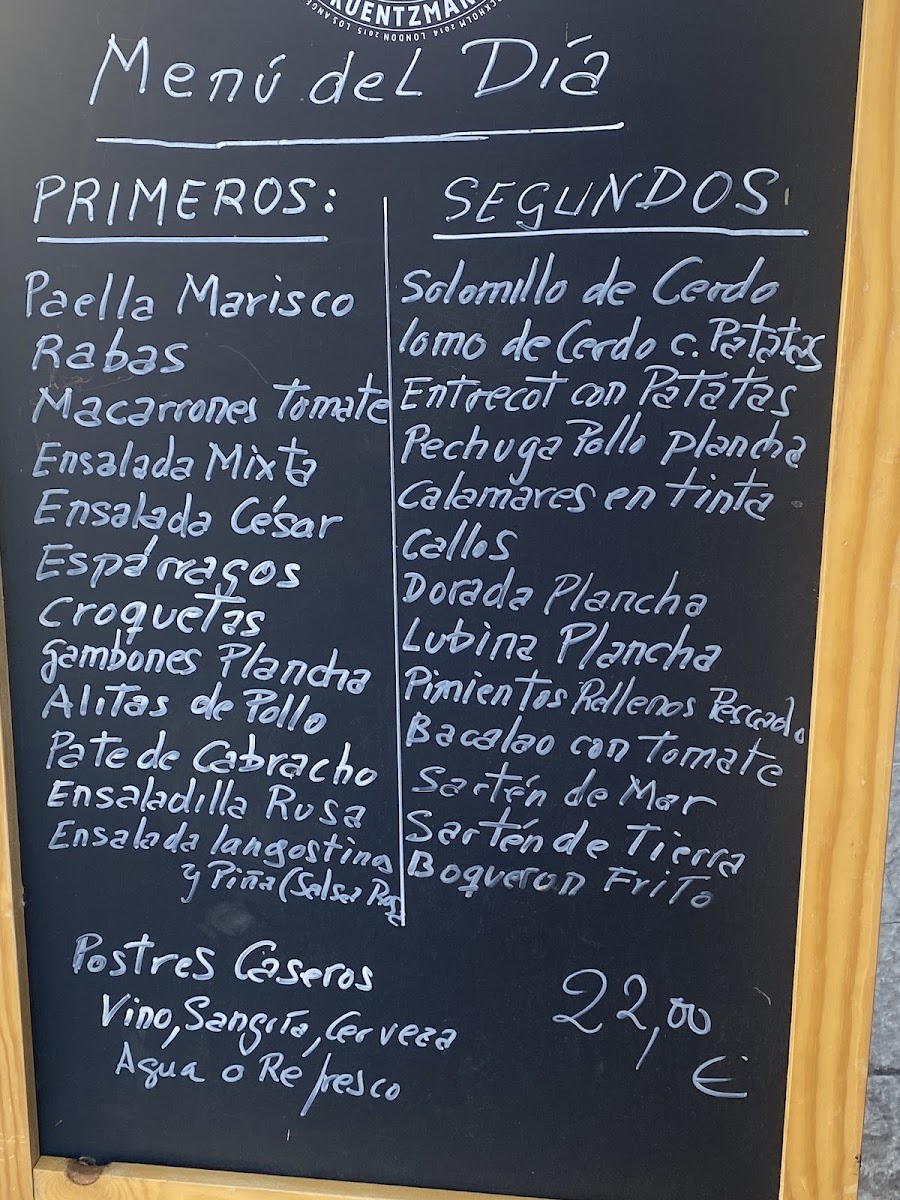 KUENTZMAN
STOCKHOLM 2014 LONDON 2015 LOS ANGE
Menú del Día
PRIMEROS:
Paella Marisco
Rabas
Macarrones Tomate
Ensalada Mixta
Ensalada César
Espárragos
Croquetas
Gambones Plancha
Alitas de Pollo
Pate de Cabracho
Ensaladilla Rusa
Ensalada langostino
y Piña (Salsa Ros
SEGUNDOS
Solomillo de Cerdo
lomo de Cerdo c. Patatas
Entrecot con Patatas
Pechuga Pollo plancha
Calamares en tinta
Callos
Dorada Plancha
Lubina Plancha
Pimientos Rellenos Pescado
Bacalao con Tomate
Sartén de Mar
Sartén de Tierra
Boqueron Frito
Postres Caseros
Vino, Sangría, Cerveza
Agua o Refresco
22,00
€